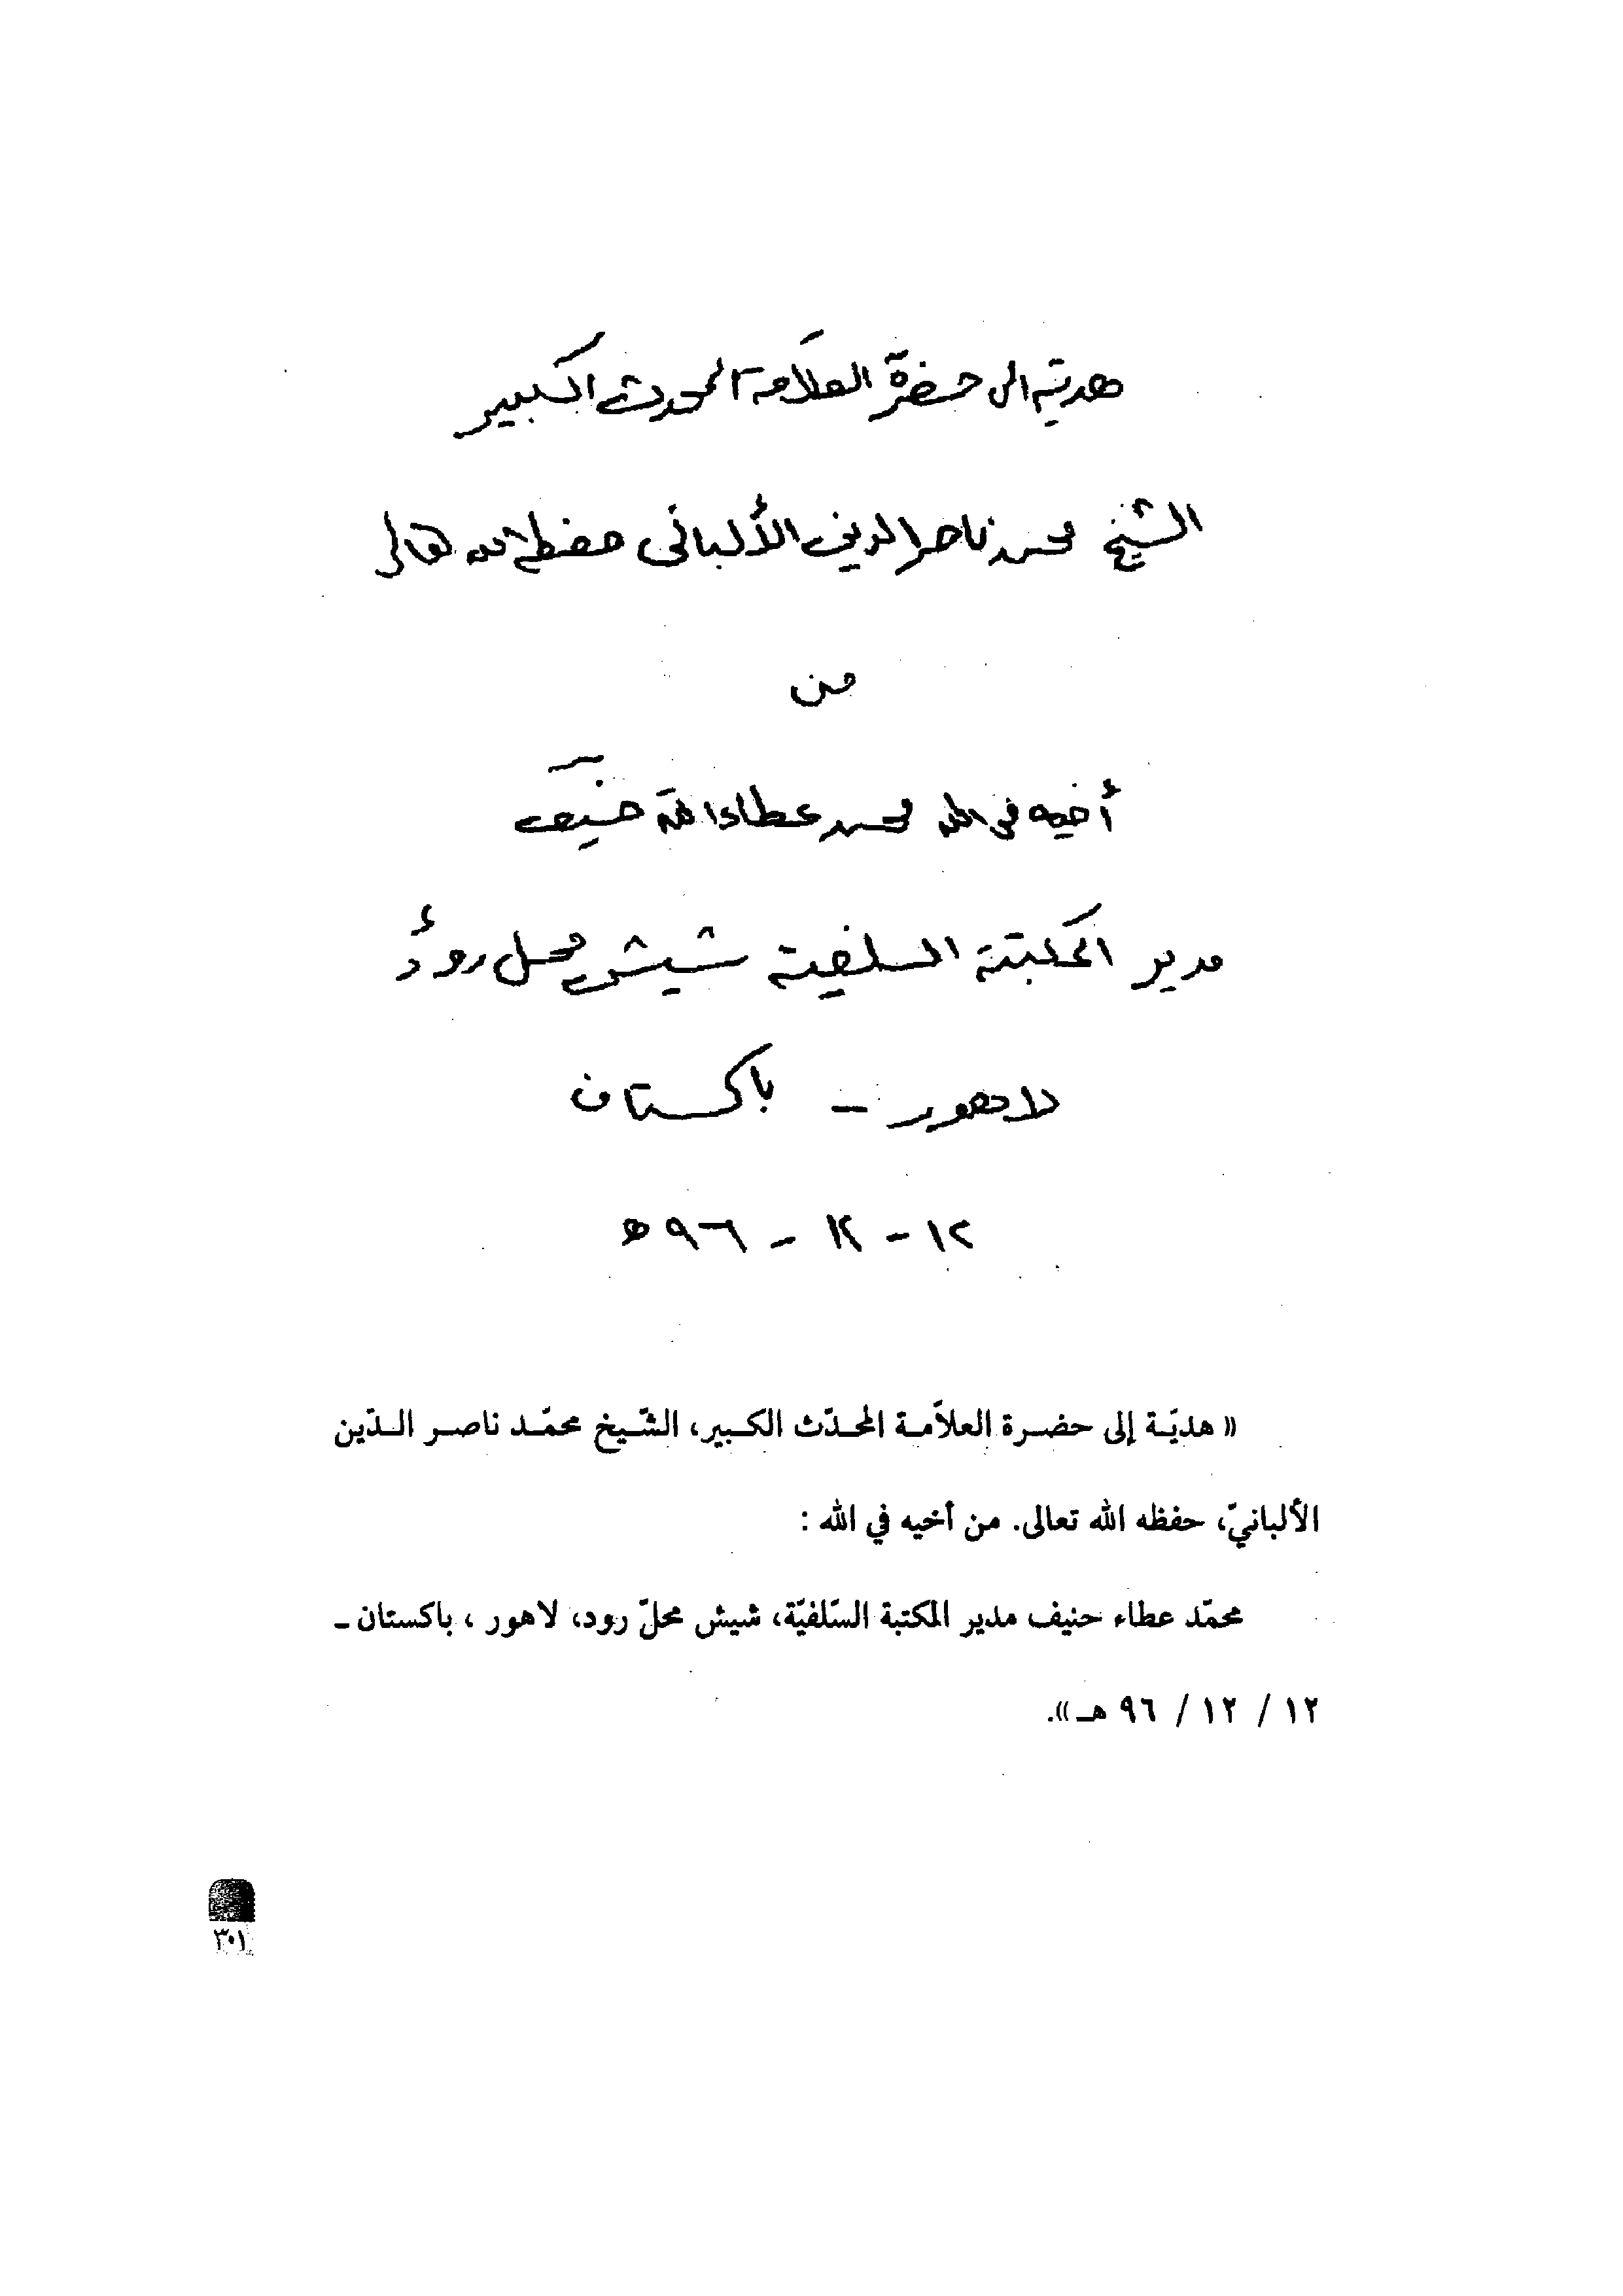 هدية الى حضرة العلامة المحدث الكبير
الشيخ محمد ناصر الدين الألباني حفظه الله تعالى
من
أخيه في الله محمد عطاء الله حنيف
مدير المكتبة السلفية شيش محل روڈ
لاهور - باكستان
١٢ - ١٢ - ٩٦ هـ
« هديّـة إلى حضـرة العلاّمـة المحـدّث الكـبير، الشّـيخ محمّـد ناصـر الـدّين
الألبانيّ، حفظه الله تعالى. من أخيه في الله :
محمّد عطاء حنيف مدير المكتبة السّلفيّة، شيش محلّ رود، لاهور ، باكستان ـ
١٢ / ١٢ / ٩٦ هـ ».
٣٠١